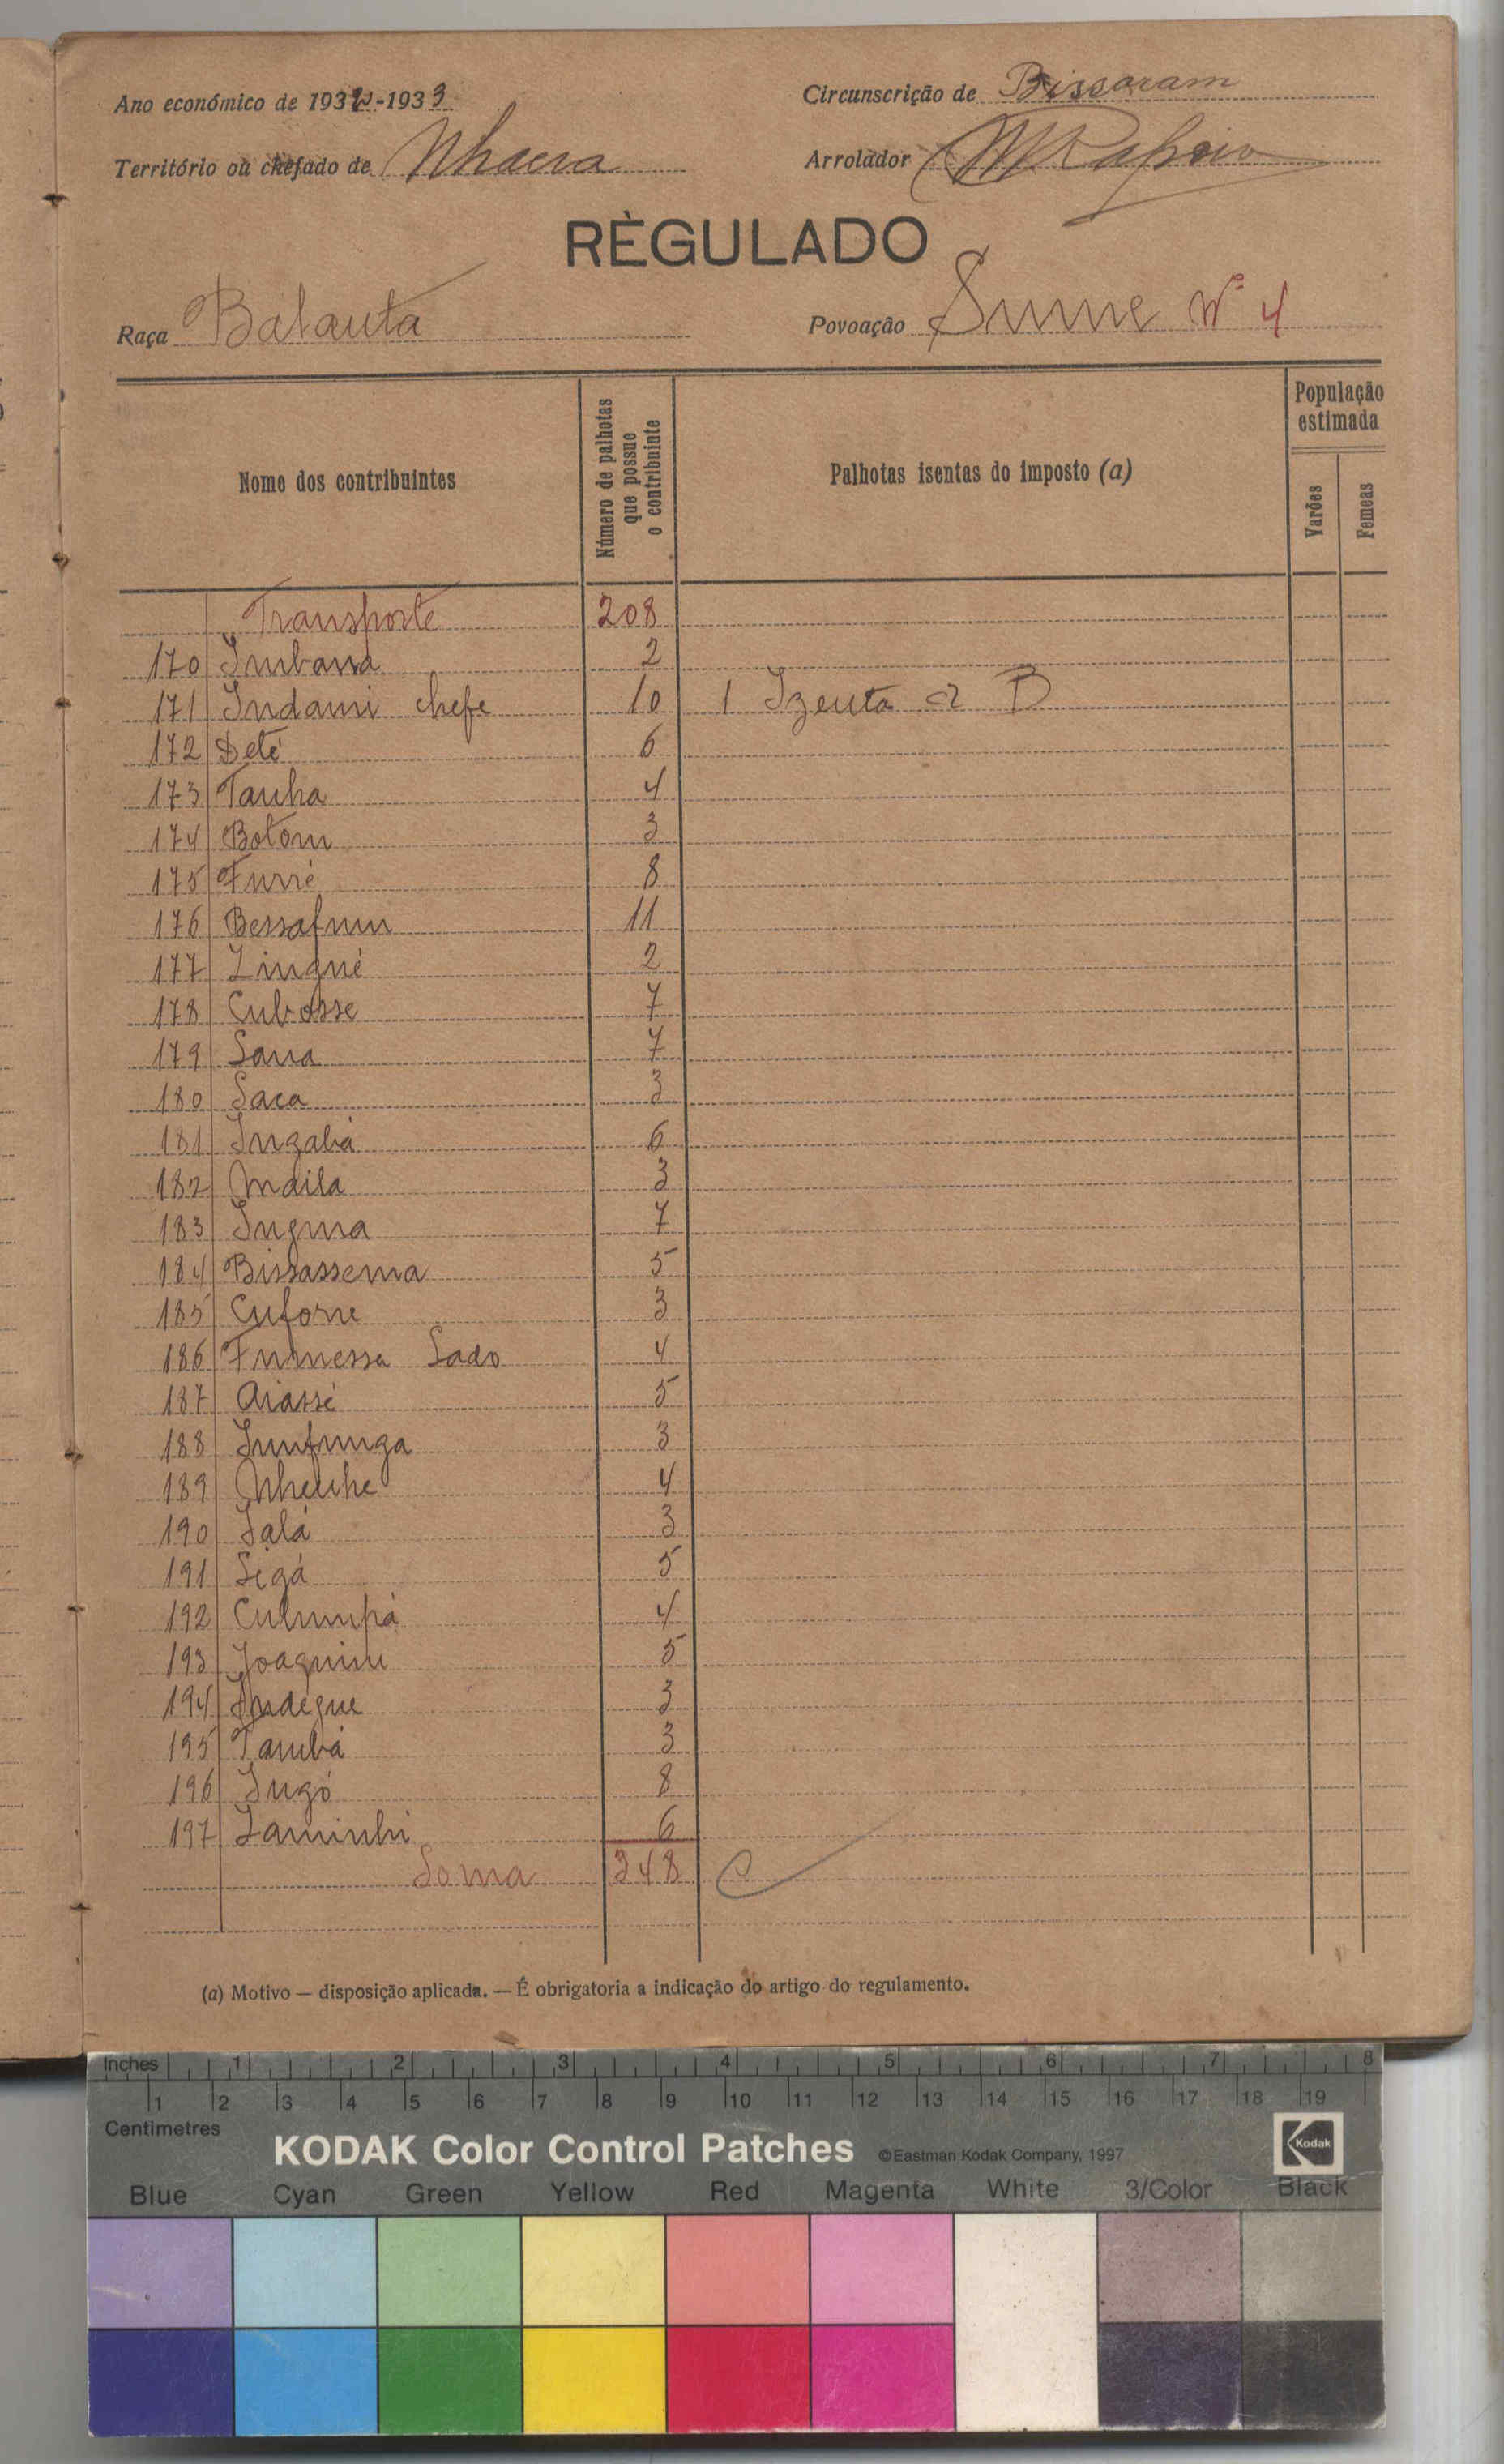 Ano económico de 1932-1933
Circunscrição de Bissoram
Território ou chefado de Nhacra
Arrolador
RÈGULADO
Raça Balanta
Povoação Sume Nº 4
Nome dos contribuintes
Número de palhotas que possue o contribuinte
Palhotas isentas do imposto (a)
População estimada
Varões
Femeas
Transporte 208
170 Imbana 2
171 Indami chefe 10 1 Izenta a) B
172 Deté 6
173 Tanha 4
174 Botom 3
175 Furré 8
176 Bessafum 11
177 Zingué 2
178 Cubosse 7
179 Sana 7
180 Saca 3
181 Ingabá 6
182 Maila 3
183 Ingma 7
184 Bissassema 5
185 Cuforre 3
186 Fumessa Sado 4
187 Aiassé 5
188 Imfunga 3
189 Nhenhe 4
190 Jalá 3
191 Sigá 5
192 Culumpá 4
193 Joaquim 5
194 Indegue 3
195 Tambá 3
196 Ingó 8
197 Zaminhi 6
Soma 348
(a) Motivo — disposição aplicada. — É obrigatoria a indicação do artigo do regulamento.
Inches 1 2 3 4 5 6 7 8
1 2 3 4 5 6 7 8 9 10 11 12 13 14 15 16 17 18 19
Centimetres
KODAK Color Control Patches ©Eastman Kodak Company, 1997 Kodak
Blue Cyan Green Yellow Red Magenta White 3/Color Black